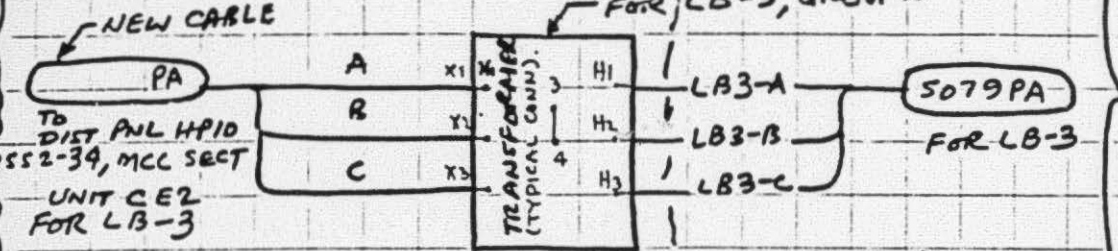 NEW CABLE
FOR LB-3,
PA
TO
DIST PNL HP10
SS2-34, MCC SECT
UNIT CE2
FOR LB-3
A
B
C
X1
X2
X3
TRANSFORMER
(TYPICAL CONN).
3
4
H1
H2
H3
LB3-A
LB3-B
LB3-C
5079PA
FOR LB-3